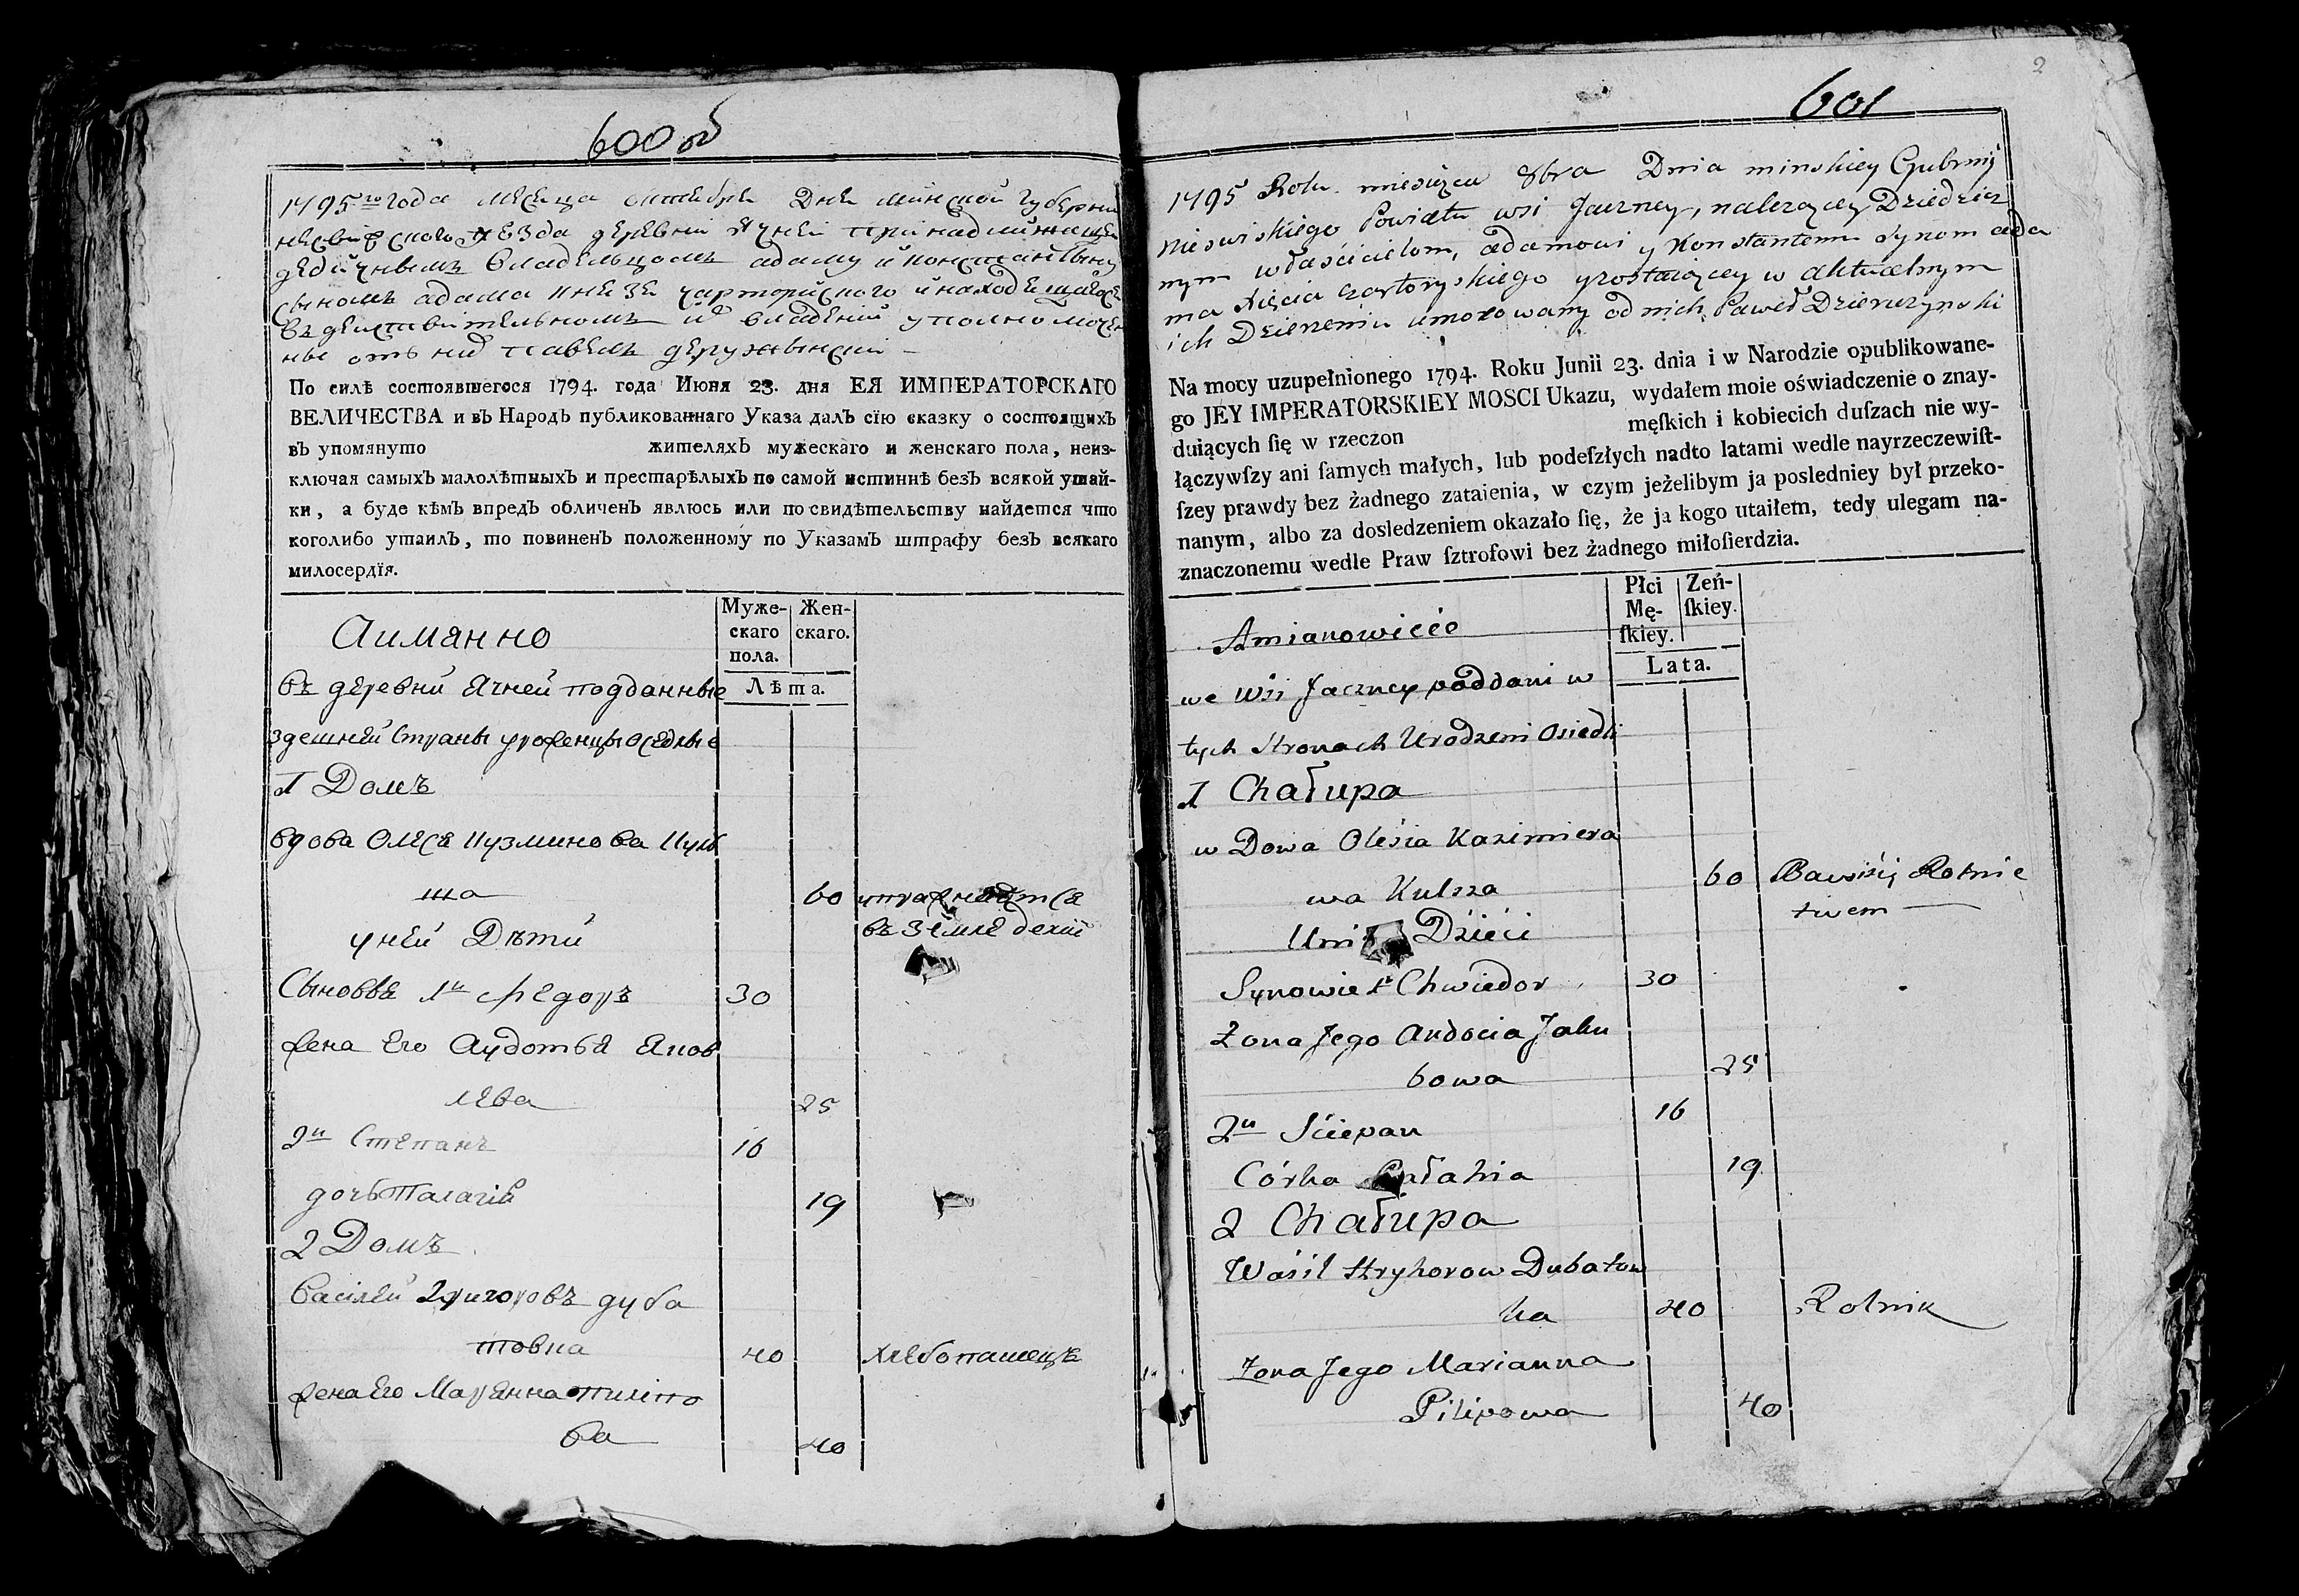 600 об
1795го года месеца октебре Дне минской губернии
несвижского уезда деревни Ячней принадлижащей
дедичнымъ владельцомъ адаму и константыну
сыномъ адама кнезе чарторыского и находещайсе
въ действительномъ их владении уполномочен
ные отъ них павелъ держинский
По силѣ состоявшегося 1794. года Июня 23. дня ЕЯ ИМПЕРАТОРСКАГО
ВЕЛИЧЕСТВА и въ Народъ публикованнаго Указа далъ сїю сказку о состоящихъ
въ упомянуто жителяхъ мужескаго и женскаго пола, неиз-
ключая самыхъ малолѣтныхъ и престарѣлыхъ по самой истиннѣ безъ всякой утай-
ки, а буде кѣмъ впредъ обличенъ явлюсь или по свидѣтельству найдется что
коголибо утаилъ, то повиненъ положенному по Указамъ штрафу безъ всякаго
милосердїя.
Муже-
скаго
пола.
Жен-
скаго.
Лѣта.
Аимянно
въ деревни Ячней подданные
здешней страны уроженцы оседлые
1 Домъ
вдова Олеся Кузминова Кул
ша 60 упражнается
въ земледелии
у ней Дѣти
Сыновья 1й Федоръ 30
жена Его Аудотья Яков
лева 25
2й Степанъ 16
дочь Палагия 19
2 Домъ
Василей Григоровъ дуба
товка 40 хлебопашецъ
жена Его Марянна пилипо
ва 40
2
601
1795 Roku miesiąca 8bra Dnia minskiey Gubernij
Nieswiskiego Powiatu wsi Jaczney, należącey Dziedzicz
nym właścicielom, adamowi y Konstantemu synom ada
ma xięcia czartoryskiego y zostaiącey w aktualnym
ich Dzierżeniu umocowany od nich Paweł Dzierżynski
Na mocy uzupełnionego 1794. Roku Junii 23. dnia i w Narodzie opublikowane-
go JEY IMPERATORSKIEY MOSCI Ukazu, wydałem moie oświadczenie o znay-
duiących ſię w rzeczon męſkich i kobiecich duſzach nie wy-
łączywſzy ani ſamych małych, lub podeſzłych nadto latami wedle nayrzeczewiſt-
ſzey prawdy bez żadnego zataienia, w czym jeżelibym ja posledniey był przeko-
nanym, albo za dosledzeniem okazało ſię, że ja kogo utaiłem, tedy ulegam na-
znaczonemu wedle Praw ſztrofowi bez żadnego miłoſierdzia.
Płci
Mę-
ſkiey.
Zeń-
ſkiey.
Lata.
Amianowicie
we Wsi Jaczney poddani w
tych Stronach Urodzeni Osiedli
1 Chałupa
wDowa Olesia Kazimiera
wa Kulsza 60 Bawiący Rolnic
twem
U ni Dzieci
Synowie 1r Chwiedor 30
Zona Jego Audocia Jaku
bowa 25
2u Sciepan 16
Córka Pałahia 19
2 Chałupa
Wasil Hryhorow Dubatow
ka 40 Rolnik
Zona Jego Marianna
Pilipowa 40